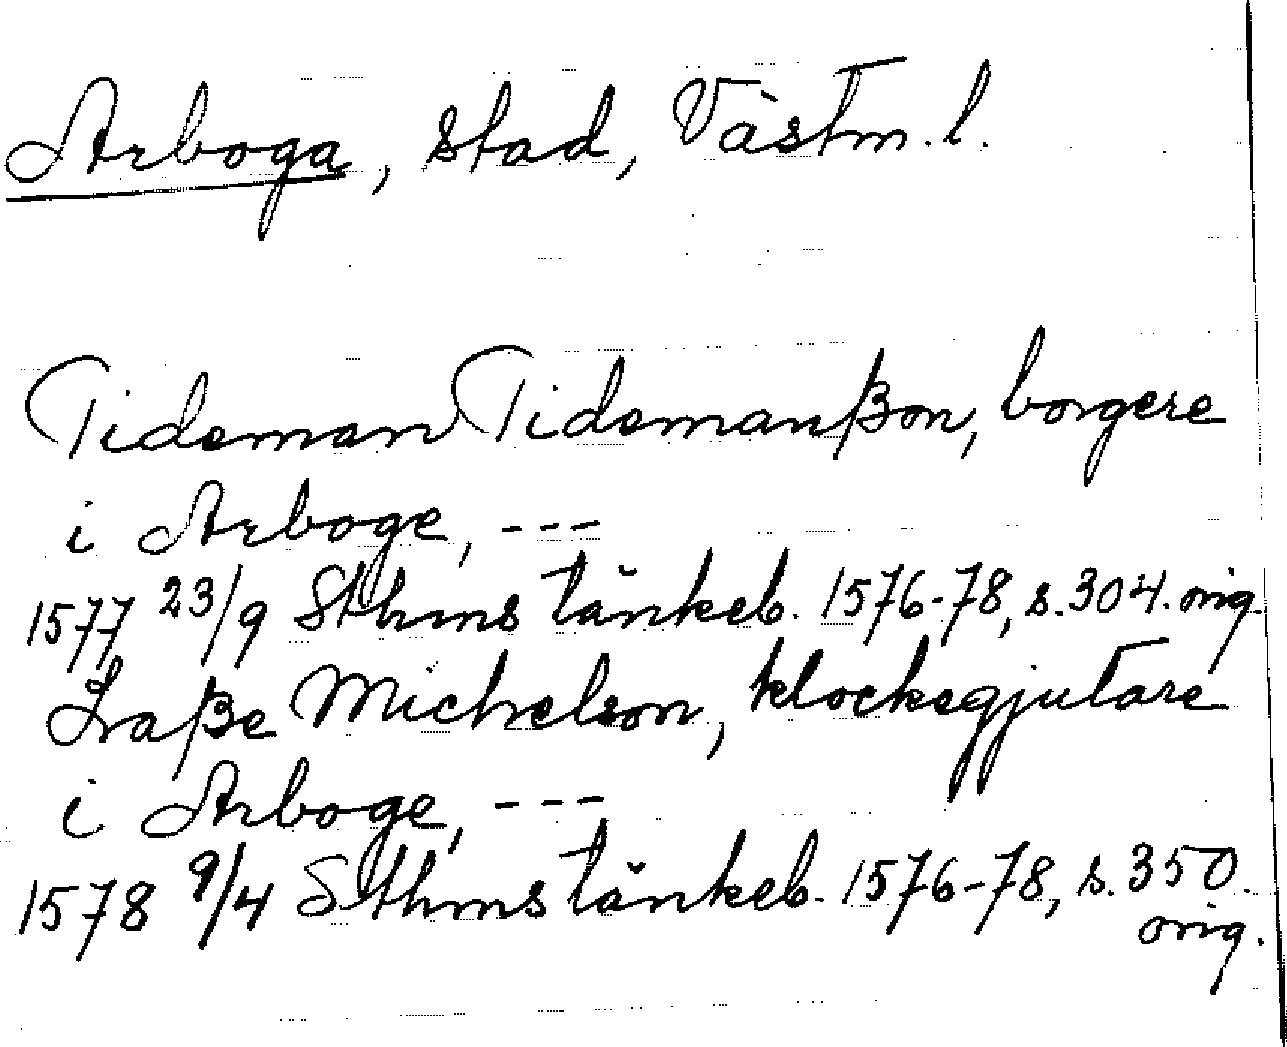 Arboga, stad, Västm. l.
Tideman Tidemanßon, borgere
i Arboge, ---
1577 23/9 Sthms tänkeb. 1576-78, s. 304. orig.
Laße Michelson, klockegjutare
i Arboge, ---
1578 9/4 Sthms tänkeb. 1576-78, s. 350.
orig.